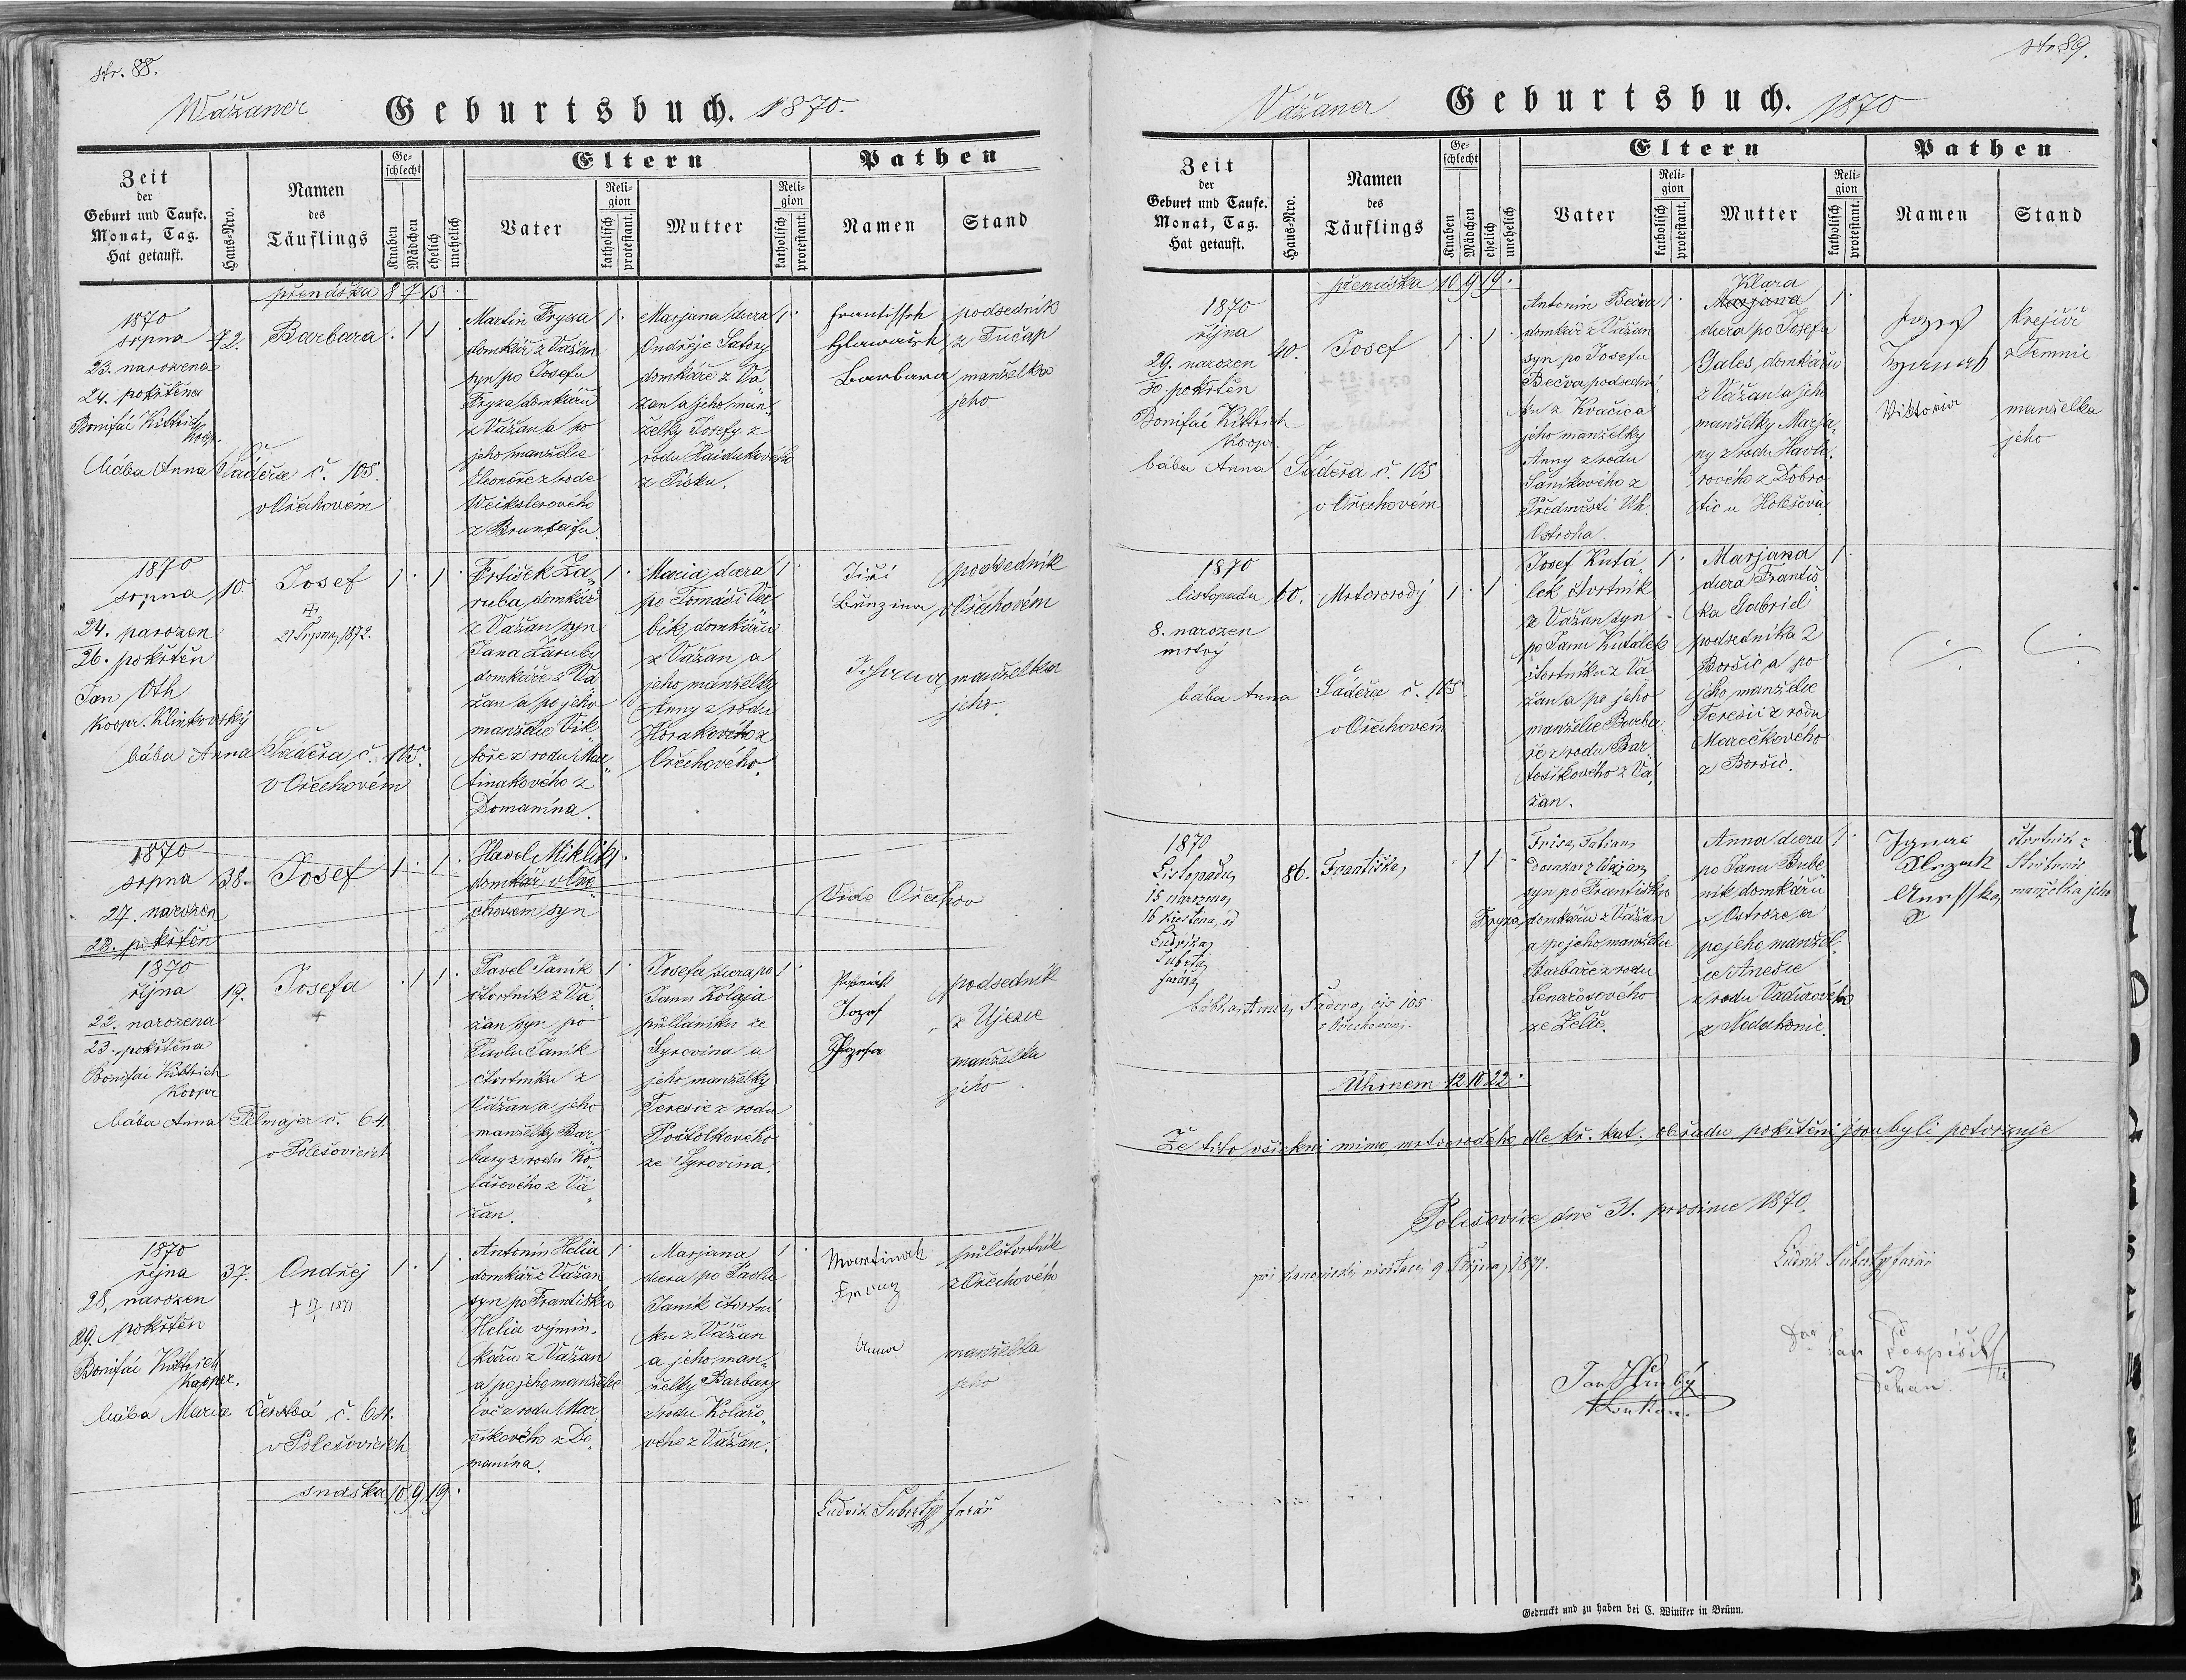 str. 88.
Wážaner Geburtsbuch. 1870.
Zeit
der
Geburt und Taufe.
Monat, Tag.
Hat getauft.
Haus-Nro.
Namen
des
Täuflings
Ge-
schlecht
Knaben
Mädchen
ehelich
unehelich
Eltern
Vater
Reli-
gion
katholisch
protestant.
Mutter
Reli-
gion
katholisch
protestant.
Pathen
Namen
Stand
přenáška 8 7 15
1870
srpna
23. narozena
24. pokřtěna
Bonifác Kittrich
koop.
bába Anna Šáděra č. 105.
v Ořechovém
72.
Barbara
. 1 1 .
Martin Fryza
domkář z Vážan
syn po Josefu
Fryza domkáři
z Vážan a po
jeho manželce
Eleonoře z rodu
Weikslerového
z Bruntálu.
1 .
Marjana dcera
Ondřeje Satory
domkáře z Vá-
žan a jeho man-
želky Josefy z
rodu Haidukového
z Písku.
1 .
Frantissek
Hlawatsch
Barbara
podsedník
z Tučap
manželka
jeho
1870
srpna
24. narozen
26. pokřtěn
Jan Oth
koopr. Klinkovský
bába Anna Šáděra, č. 105.
v Ořechovém
10.
Josef
+
21 Srpna, 1872.
1 . 1 .
Frtišek Za-
ruba, domkář
z Vážan syn
Jana Zaruby
domkáře z Vá-
žan a po jeho
manželce Vik-
toře z rodu Mar-
tinakového z
Domanína.
1 .
Maria dcera
po Tomáši Ver-
bík, domkáři
z Vážan a
jeho manželky
Anny z rodu
Horákového z
Ořechového.
1 .
Jiří
Bunzina
Johana
podsedník
v Ořechovém
manželka
jeho.
1870
srpna
27. narozen
28. pokřtěn
38.
Josef
1 . 1 .
Havel Miklík
domkář v Oře-
chovém syn
Vide Ořechov
1870
října
22. narozena
23. pokřtěna
Bonifác Kittrich
Koopr
bába Anna Felmajer č. 64
v Polešovicích
19.
Josefa
+
. 1 1 .
Pavel Janík
čtvrtník z Vá-
žan syn po
Pavlu Janík
čtvrtníku z
Vážan a jeho
manželky Bar-
bary z rodu Ko-
lářového z Vá-
žan.
1 .
Josefa dcera po
Janu Kolaja
půlláníku ze
Syrovína a
jeho manželky
Teresie z rodu
Postolkového
ze Syrovína.
1 .
Jozef
Jozefa
podsedník
z Ujezce
manželka
jeho
1870
října
28. narozen
29. pokřtěn
Bonifác Kittrich
Kooper.
bába Marie Čertká č. 64.
v Polešovicích
37.
Ondřej
+ 17/1 1871
1 . 1 .
Antonín Helia
domkář z Vážan
syn po Františku
Helia výmin-
káři z Vážan
a po jeho manželce
Evě z rodu Mar-
číkového z Do-
manína.
1 .
Marjana
dcera po Pavlu
Janík čtvrtní-
ku z Vážan
a jeho man-
želky Barbary
z rodu Kolářo-
vého z Vážan.
1 .
Martinak
Franz
Anna
půlčtvrtník
z Ořechového
manželka
jeho
snáška 10 9 19 .
Ludvík Šubert farář
str 89.
Vážaner Geburtsbuch. 1870
Zeit
der
Geburt und Taufe.
Monat, Tag.
Hat getauft.
Haus-Nro.
Namen
des
Täuflings
Ge-
schlecht
Knaben
Mädchen
ehelich
unehelich
Eltern
Vater
Reli-
gion
katholisch
protestant.
Mutter
Reli-
gion
katholisch
protestant.
Pathen
Namen
Stand
přenáška 10 9 19 .
1870
října
29. narozen
30. pokřtěn
Bonifác Kittrich
Koopr.
bába Anna Šáděra č. 105
v Ořechovém
40.
Josef
1 . 1 .
Antonín Bečva
domkář z Vážan
syn po Josefu
Bečva podsední-
ku z Kvačica
jeho manželky
Anny z rodu
Šaníkového z
Předměstí Uh.
Ostroha.
1 .
Klara
Marjana
dcera po Josefu
Gales, domkáři
z Vážan a jeho
manželky Marja-
ny z rodu Havlí-
rového z Dobro-
tic u Holešova.
1 .
Jozef
Viktoria
krejčíř
z Temnic
manželka
jeho
1870
listopadu
8. narozen
mrtvý
bába Anna Šáděra č. 105.
v Ořechovém
60.
Mrtvorodý
1 . 1
Josef Kutá-
lek čtvrtník
z Vážan syn
po Janu Kutálek
čtvrtníku z Vá-
žan a po jeho
manželce Barba-
ře z rodu Bar-
tošíkového z Vá-
žan.
1 .
Marjana
dcera Františ-
ka Gabriel
podsedníka z
Boršic a po
jeho manželce
Teresii z rodu
Marečkového
z Boršic.
1 .
1870
Listopadu,
15 narozena,
16 křestěna, od
Ludvíka,
Šuberta,
faráře,
bába, Anna, Šáděra, čís 105
v Ořechovém.
86.
Františka,
. 1 1 .
Frisa, Fabian,
Domkař z Važan,
syn po Františku
Fryza, domkáři z Vážan
a po jeho manželce
Barbaře z rodu
Lenartsového
ze Želic.
Anna dcera
po Janu Bube-
ník domkáři
z Ostroze a
po jeho manžel-
ce Anežce
z rodu Vaďurového
z Nedakonic.
1 .
Ignac
Slezak
Anesska,
čtvrtník z
manželka jeho
Úhrnem 12 10 22 .
Že tito všickni mimo mrtvorodého dle kř. kat. obřadu pokřtěni jsou byli potvrzuje
Polešovice dne 31. prosince 1870.
Ludvík Šubert, farář
při kanonické visitaci 9 Října, 1871.
Jan Hrubý
Jan Pospíšil
Děkan.
Gedruckt und zu haben bei C. Winiker in Brünn.